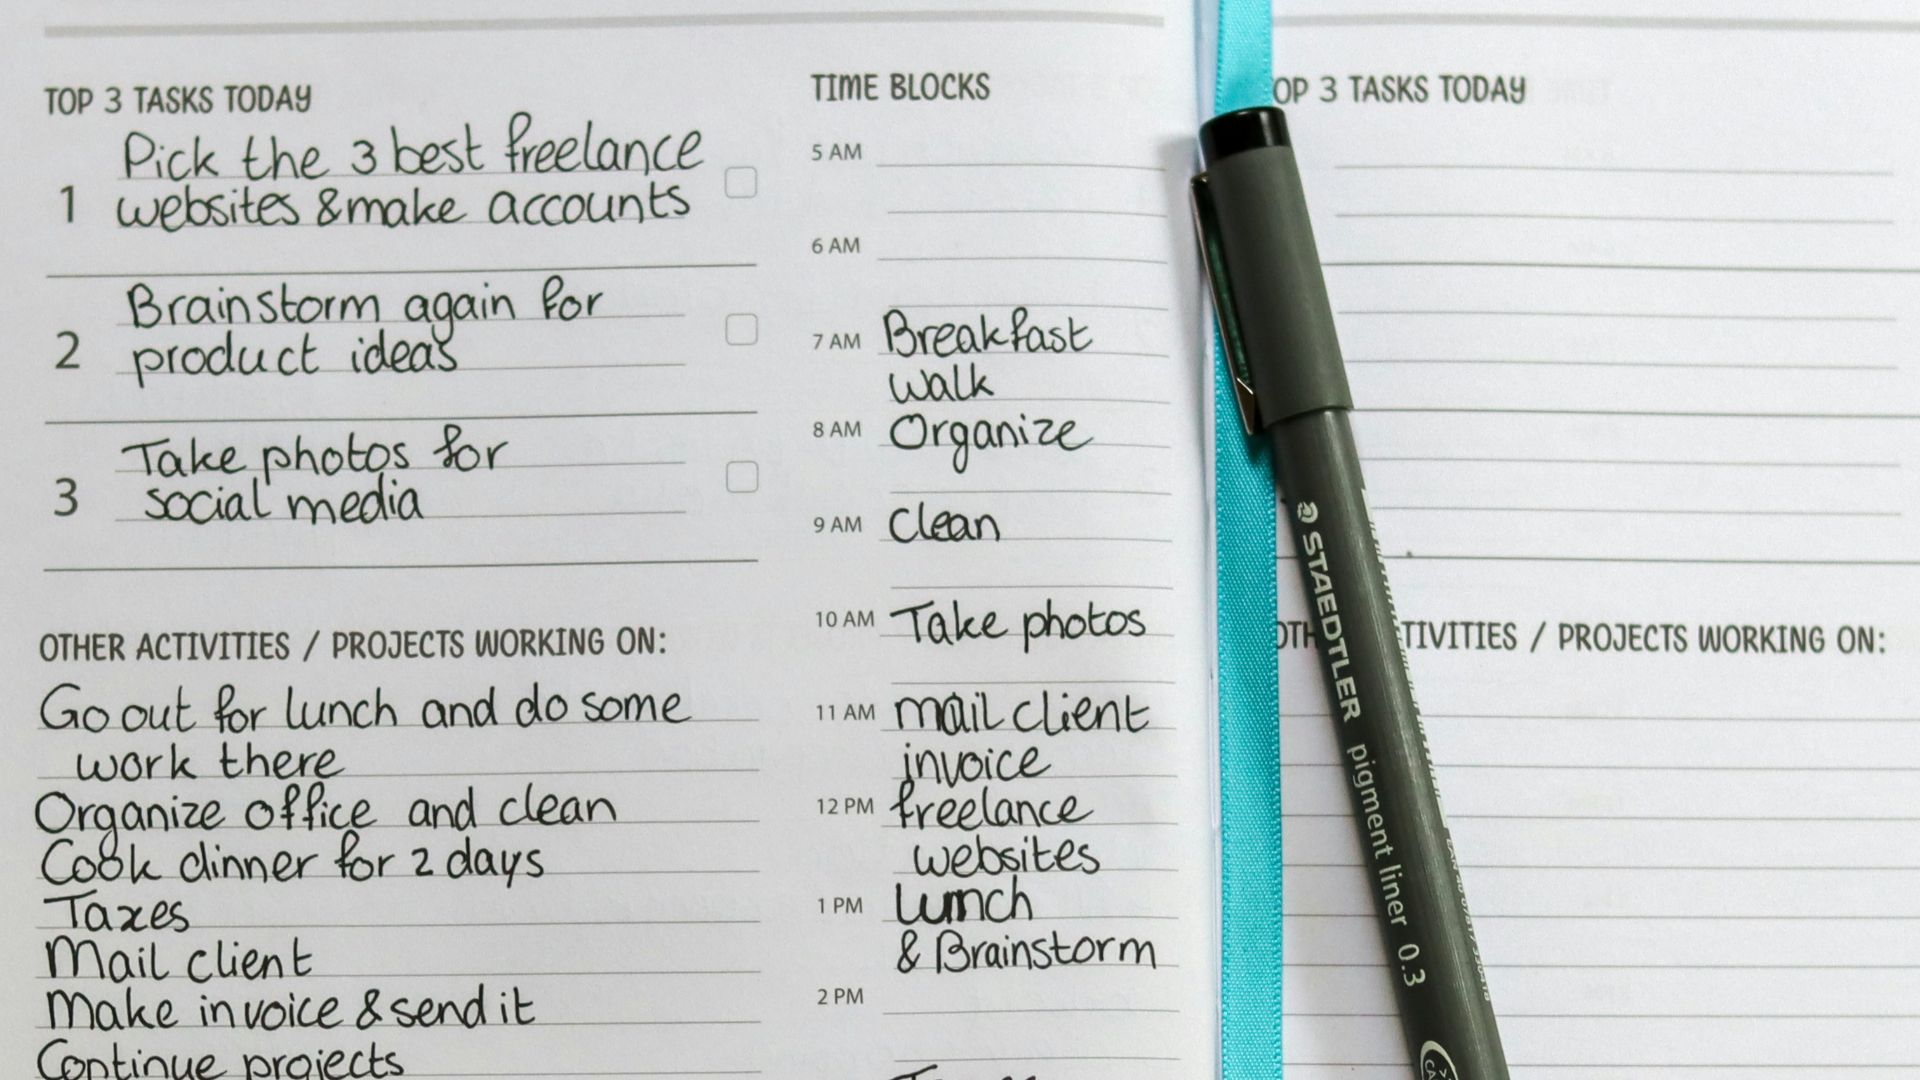 TOP 3 TASKS TODAY
1 Pick the 3 best freelance
websites & make accounts
2 Brainstorm again for
product ideas
3 Take photos for
social media
OTHER ACTIVITIES / PROJECTS WORKING ON:
Go out for lunch and do some
work there
Organize office and clean
Cook dinner for 2 days
Taxes
Mail client
Make invoice & send it
Continue projects
TIME BLOCKS
5 AM
6 AM
7 AM Breakfast
walk
8 AM Organize
9 AM Clean
10 AM Take photos
11 AM mail client
invoice
12 PM freelance
websites
1 PM Lunch
& Brainstorm
2 PM
STAEDTLER pigment liner 0.3
OP 3 TASKS TODAY
OTH TIVITIES / PROJECTS WORKING ON: